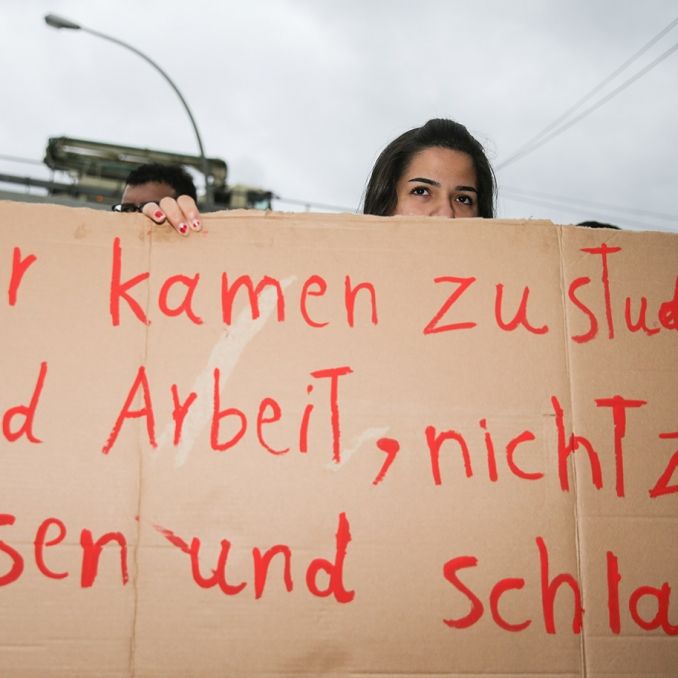 r kamen zu stud
d Arbeit, nicht z
sen und schla